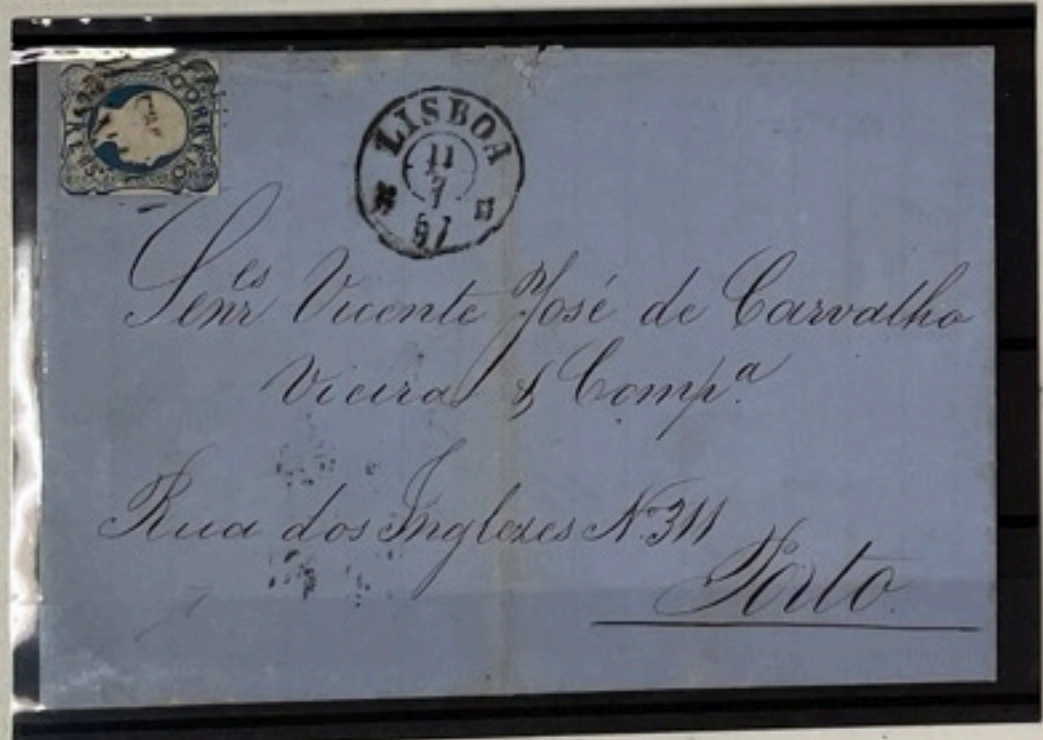 CORREIO
LISBOA
11
7
57
Senr.es Vicente José de Carvalho
Vieira & Comp.a
Rua dos Inglezes No. 311
Porto